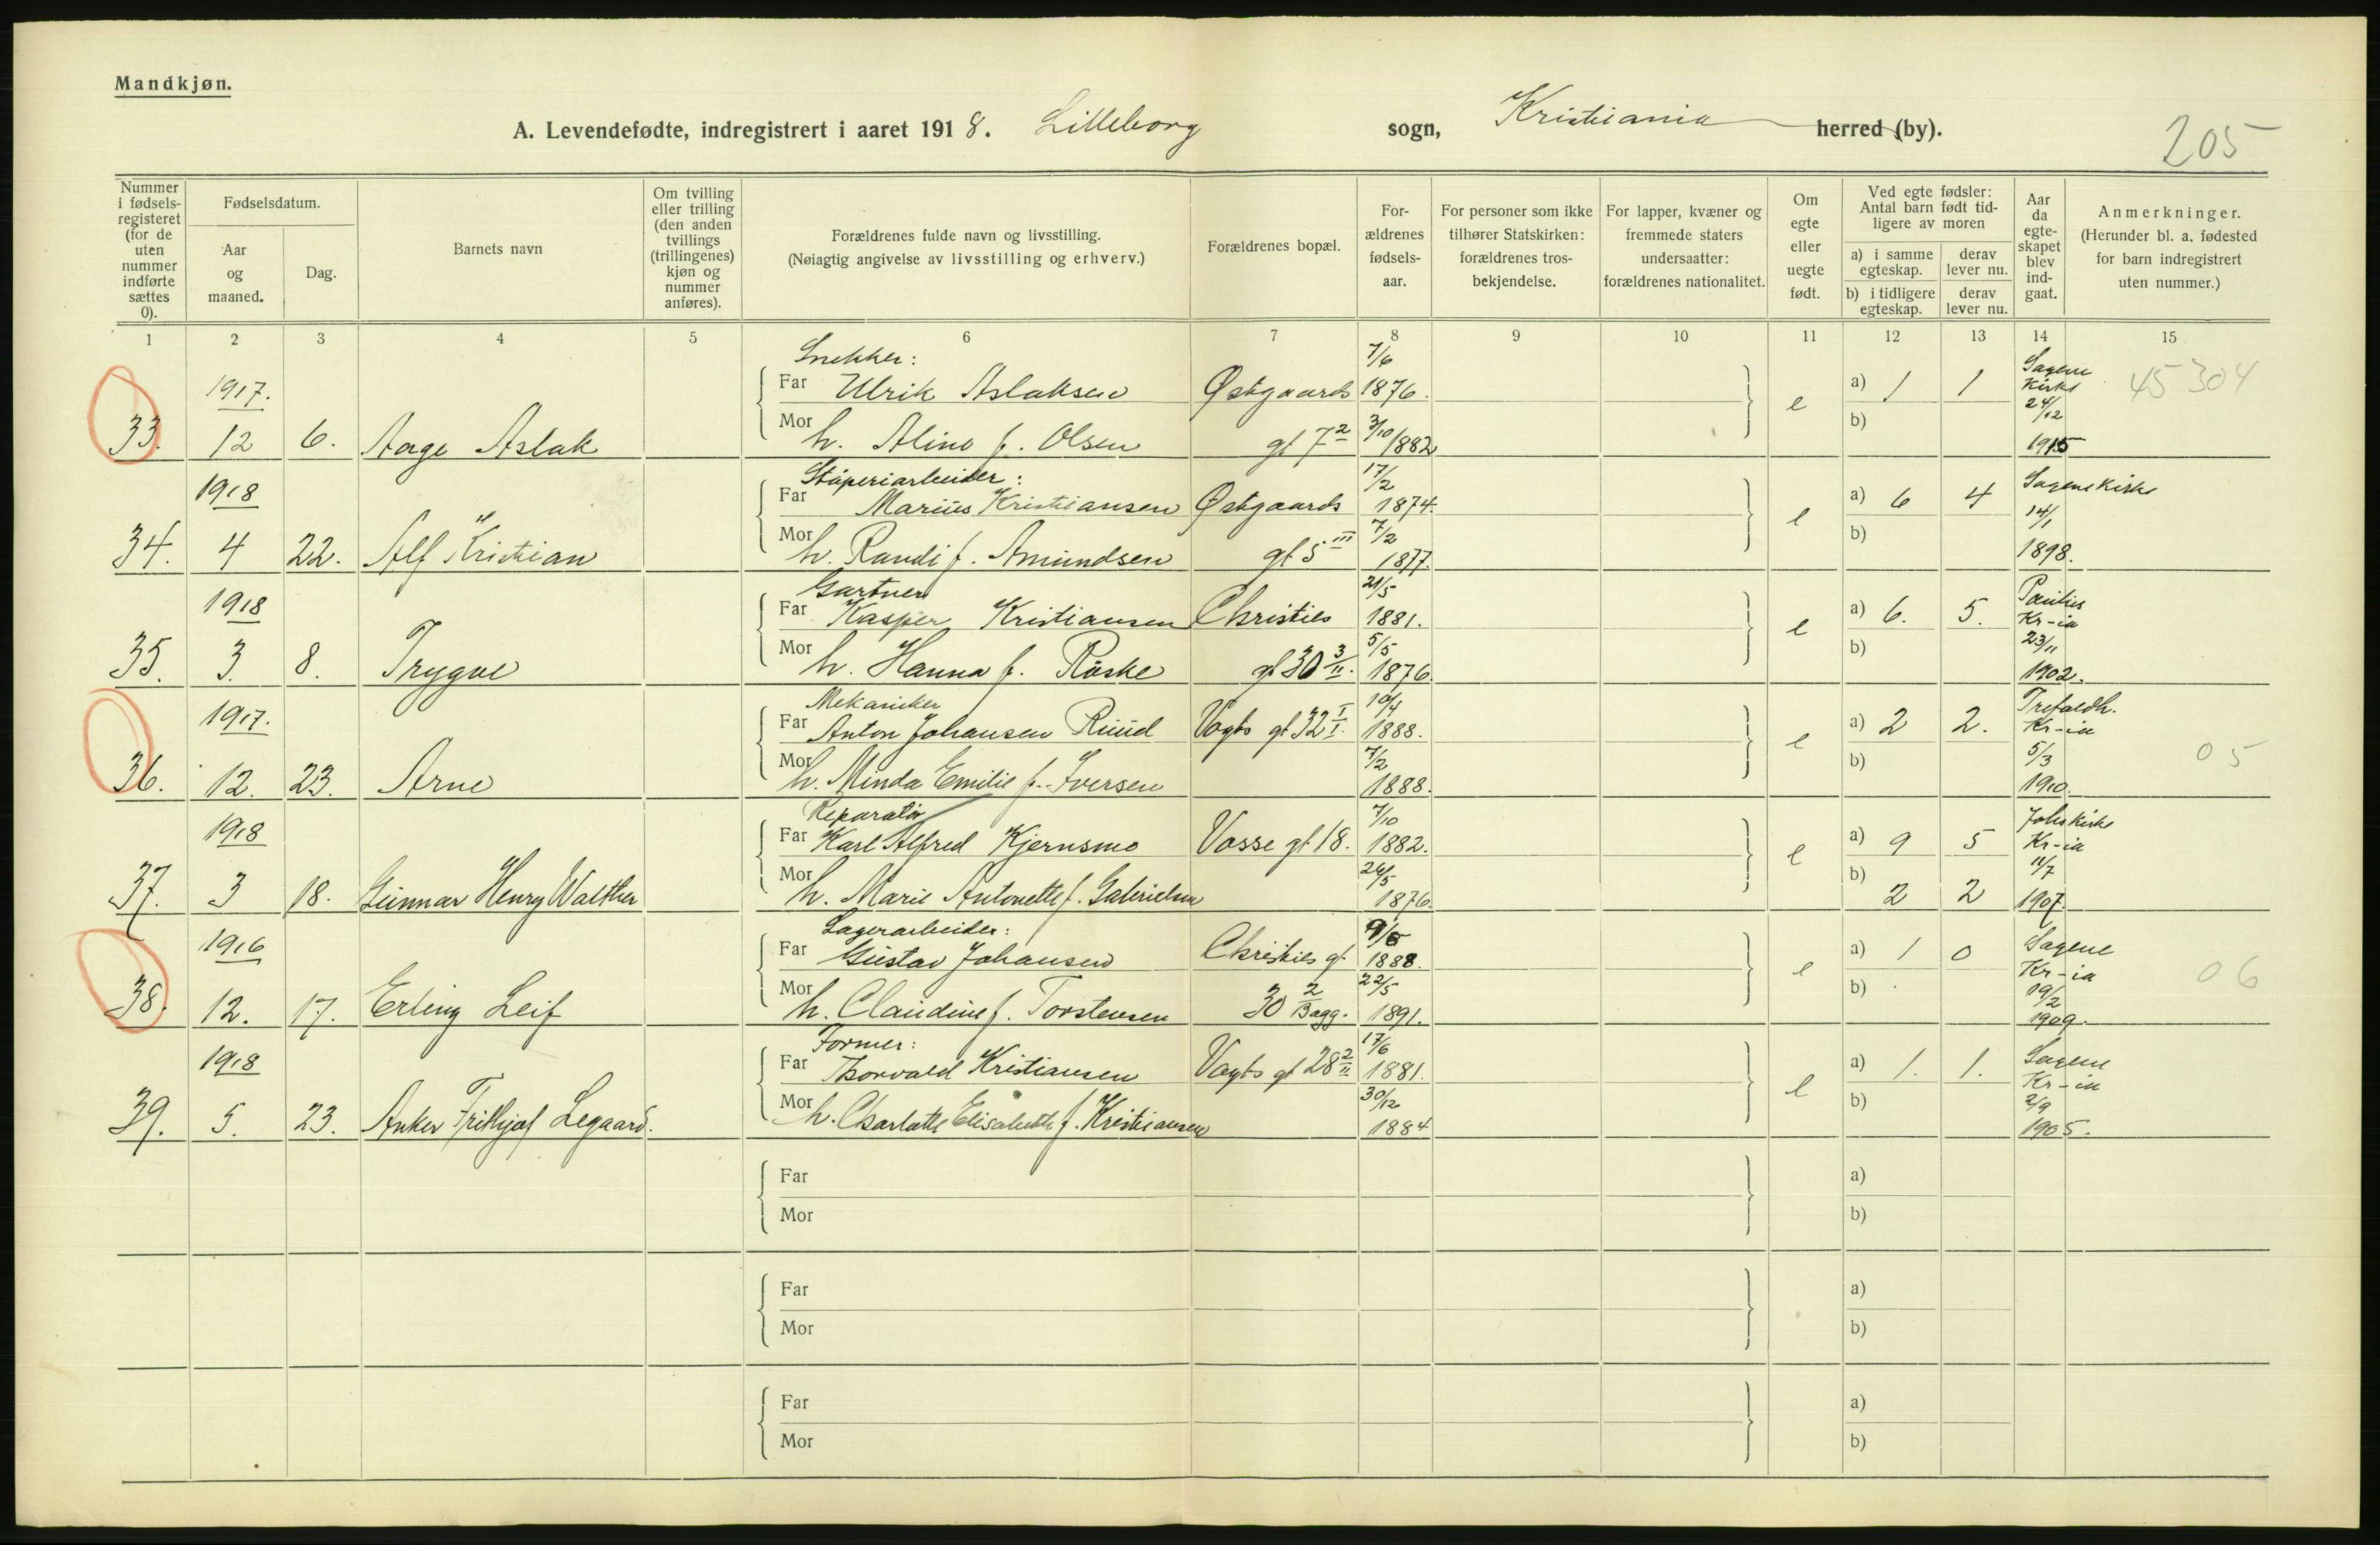 Mandkjøn.
A. Levendefødte, indregistrert i aaret 1918. Lilleborg sogn, Kristiania herred (by).
205
Nummer i fødsels-registeret (for de uten nummer indførte sættes 0).
Fødselsdatum.
Aar og maaned.
Dag.
Barnets navn
Om tvilling eller trilling (den anden tvillings (trillingenes) kjøn og nummer anføres).
Forældrenes fulde navn og livsstilling.
(Nøiagtig angivelse av livsstilling og erhverv.)
Forældrenes bopæl.
For-ældrenes fødsels-aar.
For personer som ikke tilhører Statskirken: forældrenes tros-bekjendelse.
For lapper, kvæner og fremmede staters undersaatter: forældrenes nationalitet.
Om egte eller uegte født.
Ved egte fødsler: Antal barn født tid-ligere av moren
a) i samme egteskap.
derav lever nu.
b) i tidligere egteskap.
derav lever nu.
Aar da egte-skapet blev ind-gaat.
Anmerkninger.
(Herunder bl. a. fødested for barn indregistrert uten nummer.)
1 2 3 4 5 6 7 8 9 10 11 12 13 14 15
Snekker: 7/6 Sagene
1917. Far Ulrik Aslaksen Østgaards 1876. e a) 1 1 Kirke 45304
24/12
33. 12 6. Aage Aslak Mor h. Aline f. Olsen gt 7 2 3/10 1882 b) 1915
Støperiarbeider: 17/2
1918 Far Marius Kristiansen Østgaards 1874. e a) 6 4 Sagene Kirke
14/1
34. 4 22. Alf Kristian Mor h. Randi f. Amundsen gt 5 III 7/2 1877. b) 1898.
Gartner 21/5 Paulus
1918 Far Kasper Kristiansen Christies 1881. e a) 6. 5. Kr-ia
23/11
35. 3. 8. Trygve Mor h. Hanna f. Røske gt 30 3/II. 5/5 1876. b) 1902.
Mekaniker 10/4 Trefoldh.
1917. Far Anton Johansen Ruud Vogts gt 32 I/I. 1888. e a) 2 2. Kr-ia 05
5/3
36. 12. 23. Arne Mor h. Minda Emilie f. Iversen 7/2 1888. b) 1910.
Reparatør 7/10 Johs kirke
1918 Far Karl Alfred Kjernsmo Vosse gt 18. 1882. e a) 9 5 Kr-ia
11/7
37. 3 18. Gunnar Henry Walther Mor h. Marie Antonette f. Gabrielsen 26/5 1876. b) 2 2 1907.
Lagerarbeider: 9/6 Sagene
1916 Far Gustav Johansen Christies gt 1888. e a) 1 0 Kr-ia 06
19/2
38. 12. 17. Erling Leif Mor h. Claudine f. Torstensen 30 2/Bagg. 22/5 1891. b) 1909.
Former: 17/6 Sagene
1918 Far Thorvald Kristiansen Vogts gt 28 2/II 1881. e a) 1. 1. Kr-ia
2/9
39. 5. 23. Anker Frithjof Legaard. Mor h. Charlotte Elisabeth f. Kristiansen 30/12 1884 b) 1905.
Far a)
Mor b)
Far a)
Mor b)
Far a)
Mor b)